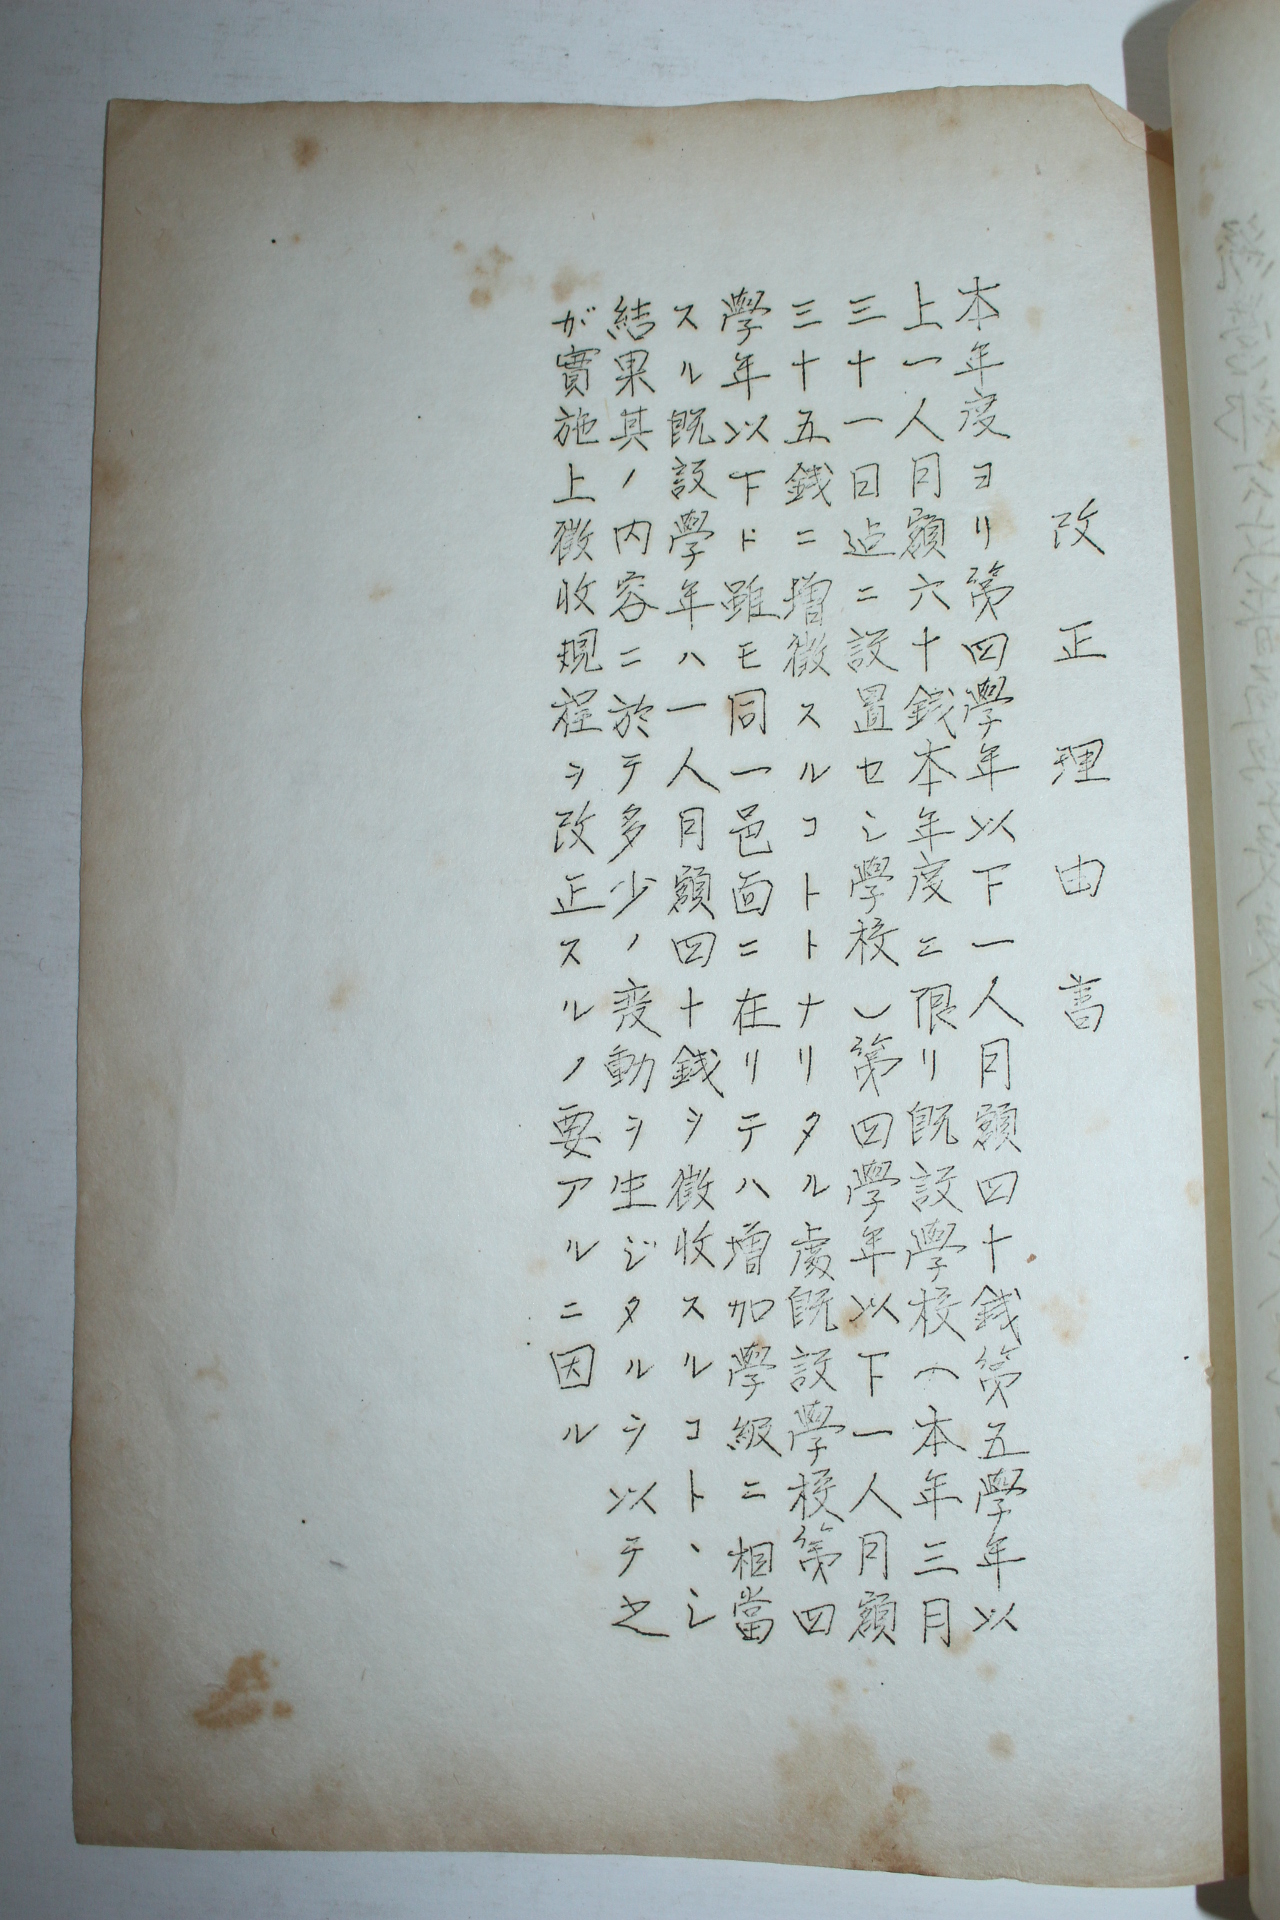 改正理由書
本年度ヨリ第四學年以下一人月額四十銭第五學年以
上一人月額六十銭本年度ニ限リ既設學校(本年三月
三十一日迠ニ設置セシ學校)第四學年以下一人月額
三十五銭ニ増徴スルコトトナリタル處既設學校第四
學年以下ト雖モ同一邑面ニ在リテハ増加學級ニ相當
スル既設學年ハ一人月額四十銭ヲ徴收スルコトヽシ
結果其ノ内容ニ於テ多少ノ変動ヲ生ジタルヲ以テ之
が實施上徴收規程ヲ改正スルノ要アルニ因ル